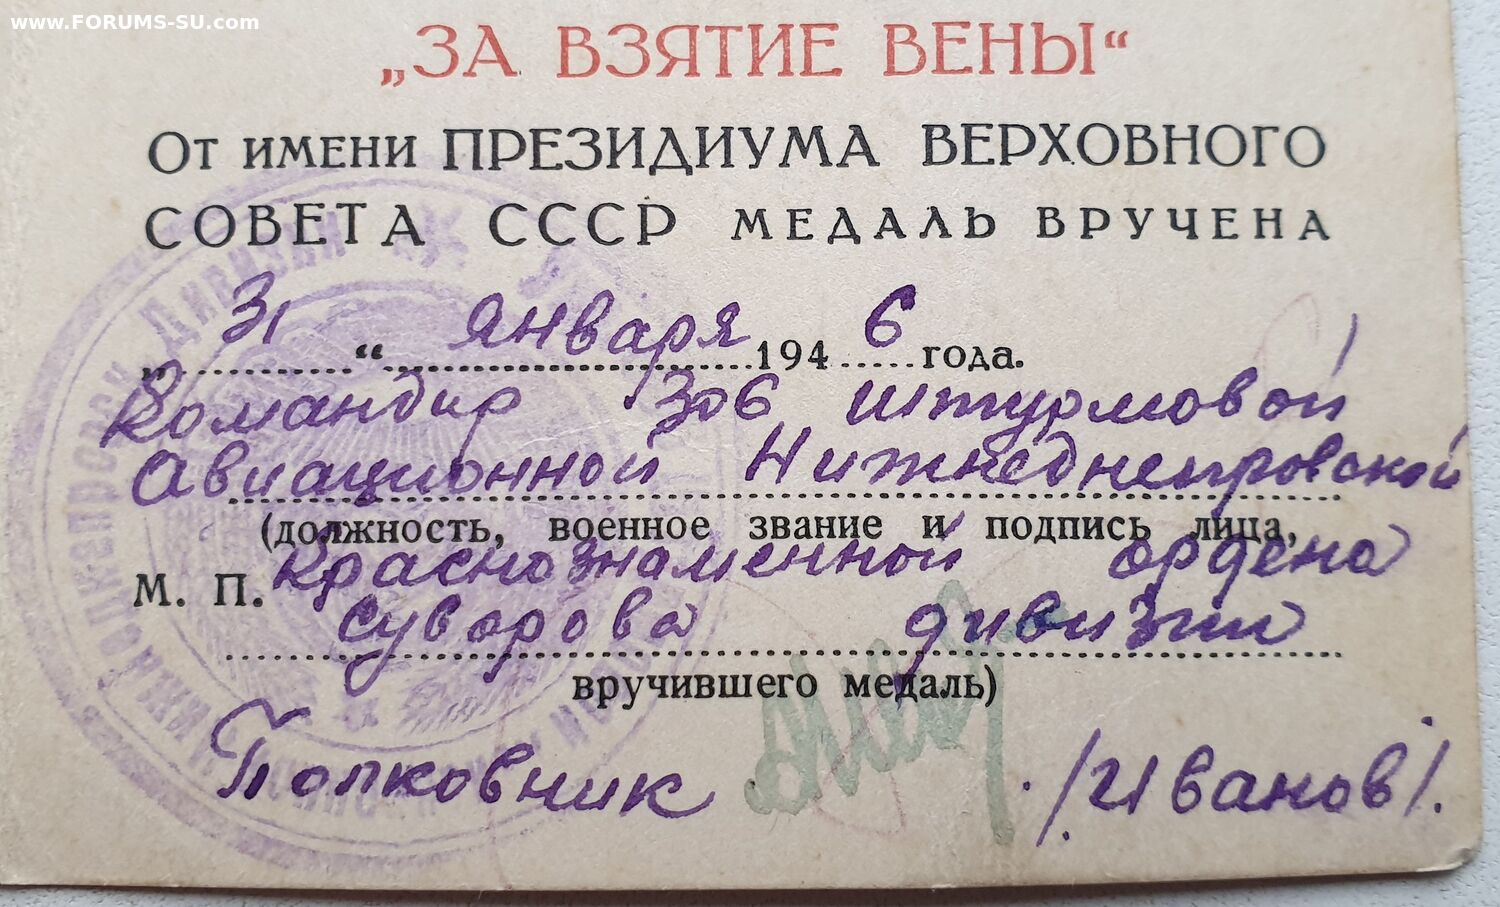 www.FORUMS-SU.com
„ЗА ВЗЯТИЕ ВЕНЫ“
От имени ПРЕЗИДИУМА ВЕРХОВНОГО
СОВЕТА СССР МЕДАЛЬ ВРУЧЕНА
„31“ января 1946 года.
Командир 306 штурмовой
Авиационной Нижнеднепровской
(должность, военное звание и подпись лица,
М. П. Краснознаменной ордена
Суворова дивизии
вручившего медаль)
Полковник /Иванов/.